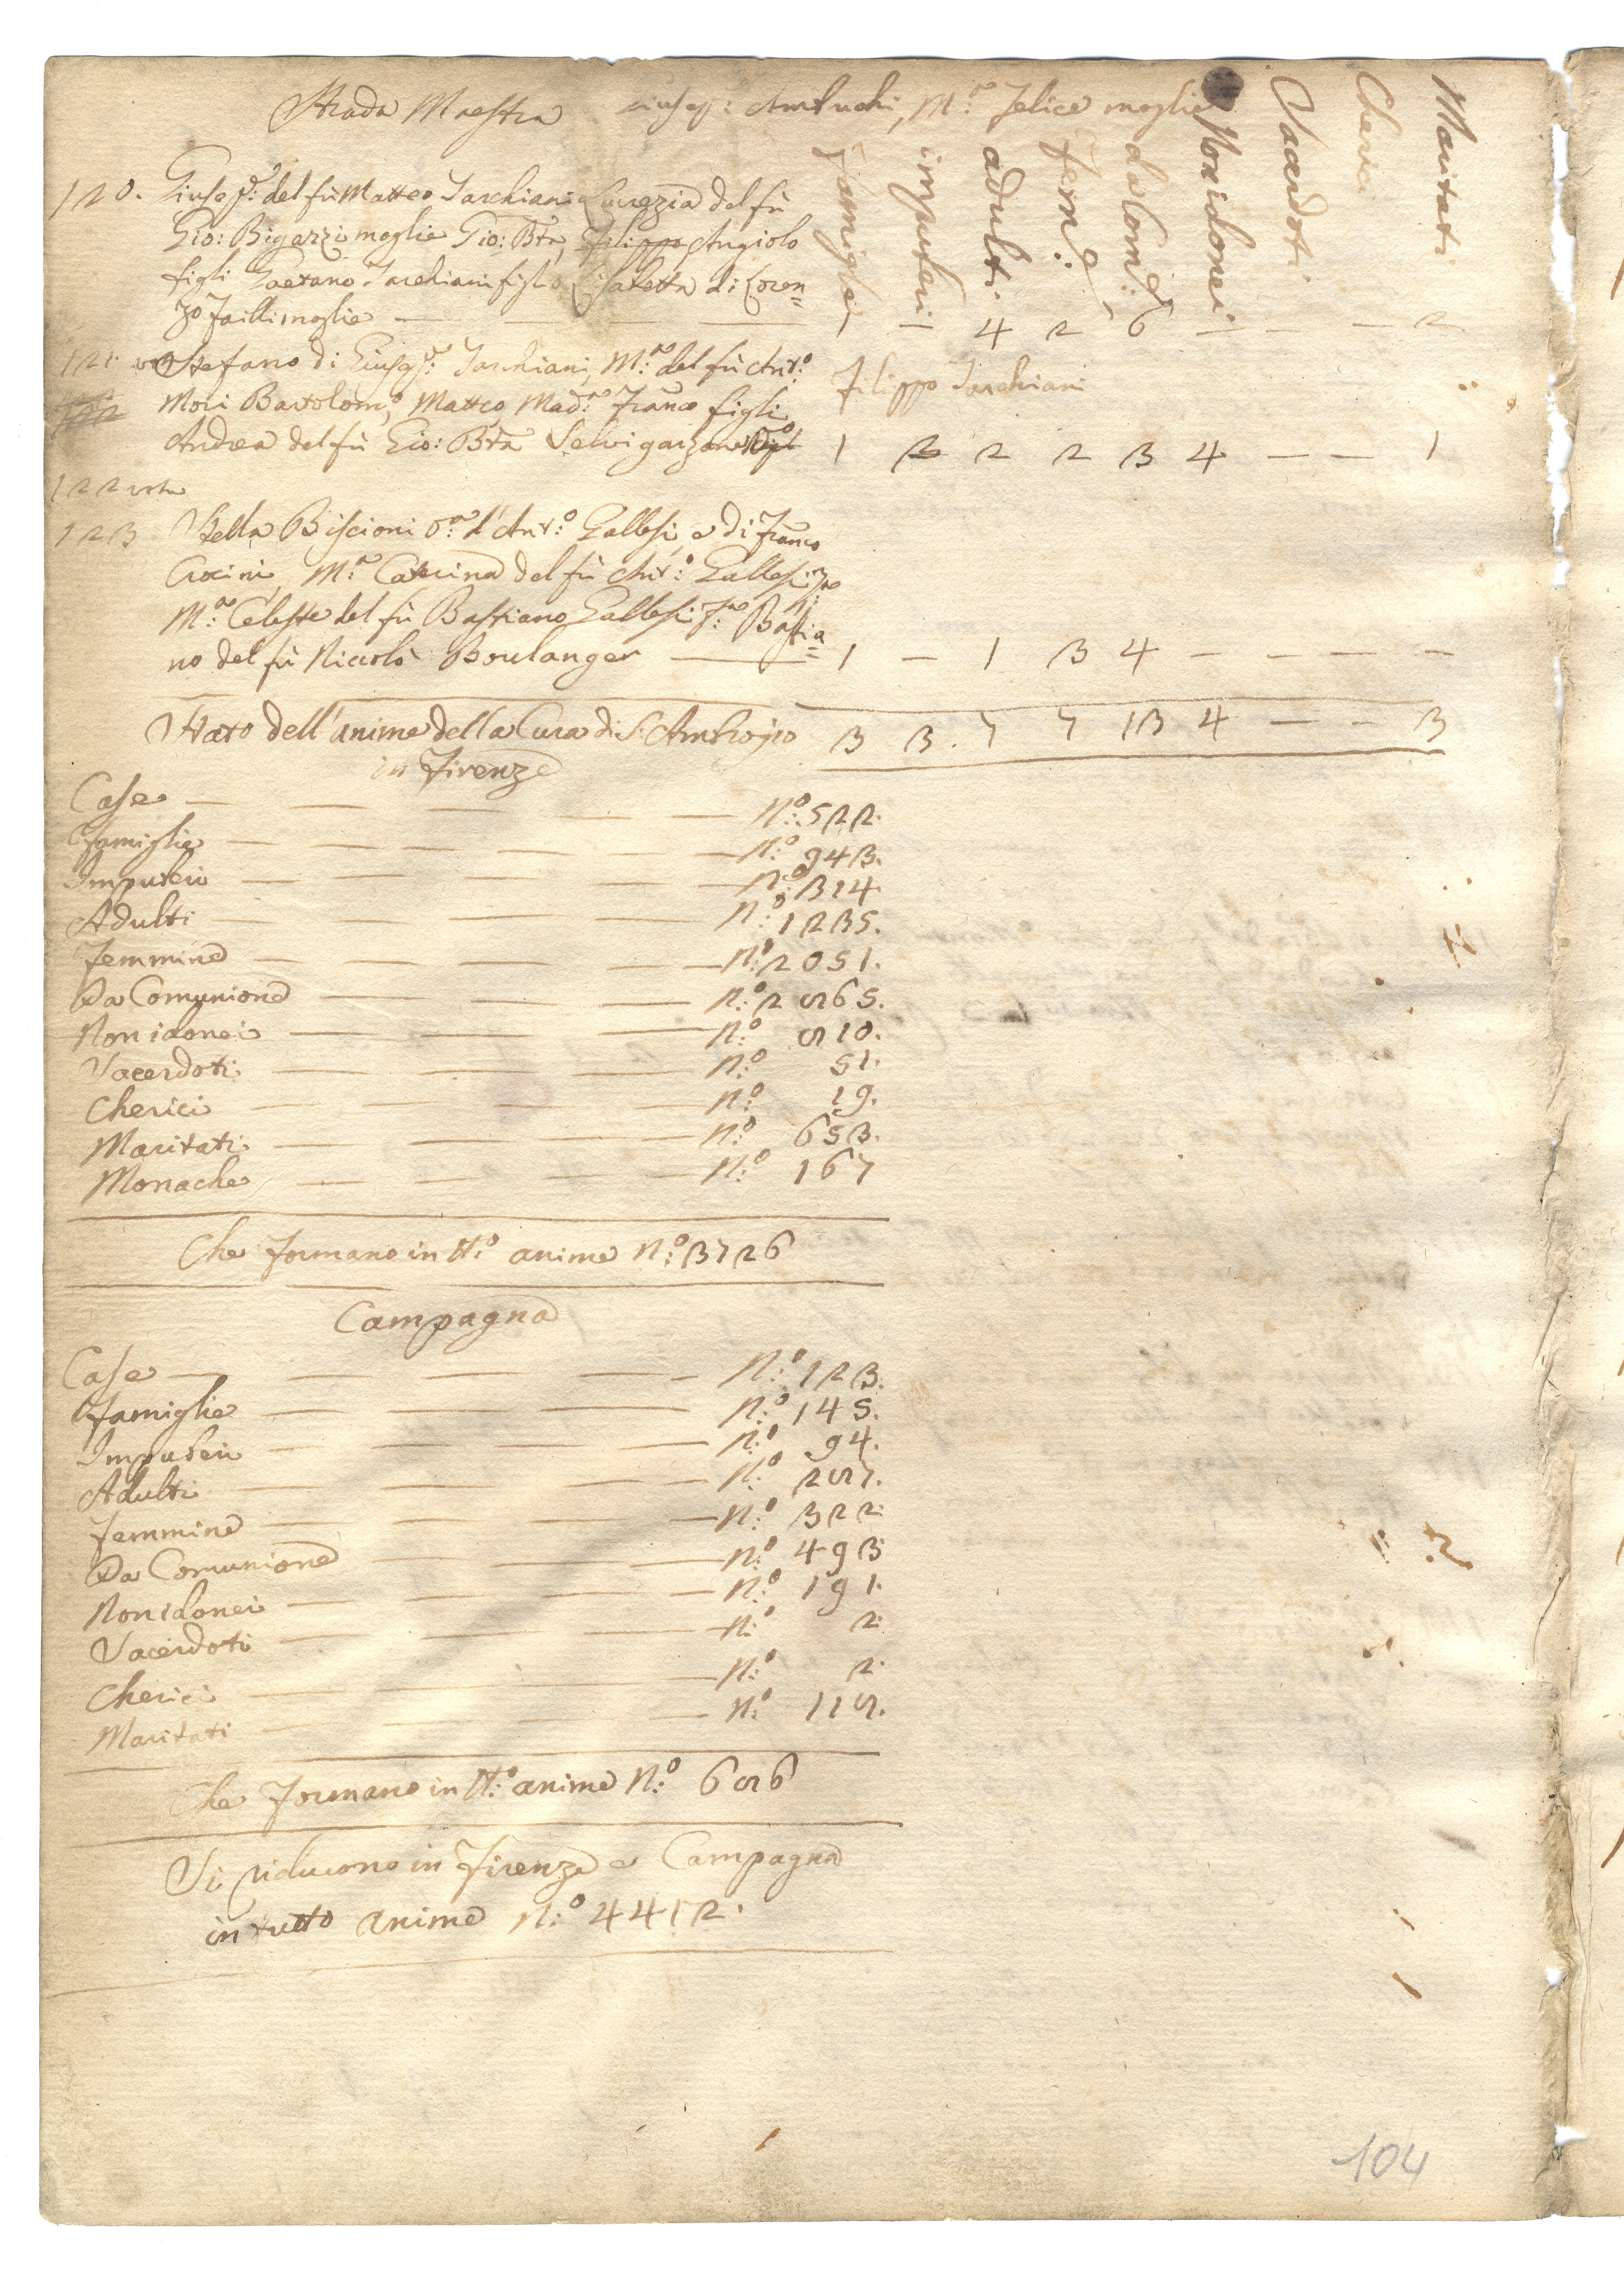 Strada Maestra Giusep: Ambuchi, M.a Felice moglie
Famiglie impuberi adulti Fem:e da Com:e Non idonei Sacerdoti Cherici Maritati
120. Giusep:e del fù Matteo Tarchiani Lucrezia del fù
Gio: Bigazzi moglie Gio: Bta, Filippo Angiolo
figli Gaetano Tarchiani figlio Elisabetta di Loren=
zo Failli moglie — — — 1 — 4 2 6 — — — 2
121 Stefano di Giusep:e Tarchiani, M:a del fù Ant:o Filippo Tarchiani
Mori Bartolom:o, Matteo Mad:a Franco figli
Andrea del fù Gio: Bta Selvi garzone 1 2 2 2 3 4 — — 1
122 vota
123 Stella Biscioni v:a d'Ant:o Gallesi, e di Franco
Crocini, M:a Caterina del fù Ant:o Gallesi
M:a Celeste del fù Bastiano Gallesi Bastia=
no del fù Niccolò Boulanger — 1 — 1 3 4 — — — —
Stato dell'anime della Cura di S. Ambrogio 3 3. 7 7 13 4 — — 3
in Firenze
Case — — — — N:o 522.
Famiglie — — — — N:o 943.
Impuberi — — — — N:o 314.
Adulti — — — — N:o 1235.
Femmine — — — — N:o 2051.
Da Comunione — — — N:o 2865.
Non idonei — — — N:o 810.
Sacerdoti — — — — N:o 51.
Cherici — — — — N:o 19.
Maritati — — — — N:o 653.
Monache — — — — N:o 167
Che formano in tt:o anime N:o 3726
Campagna
Case — — — — N:o 123.
Famiglie — — — — N:o 145.
Impuberi — — — — N:o 94.
Adulti — — — — N:o 287.
Femmine — — — — N:o 322.
Da Comunione — — — N:o 493
Non idonei — — — N:o 191.
Sacerdoti — — — — N:o 2.
Cherici — — — — N:o 2.
Maritati — — — — N:o 118.
Che formano in tt:o anime N:o 686
Si riducono in Firenze e Campagna
in tutto anime N:o 4412.
104